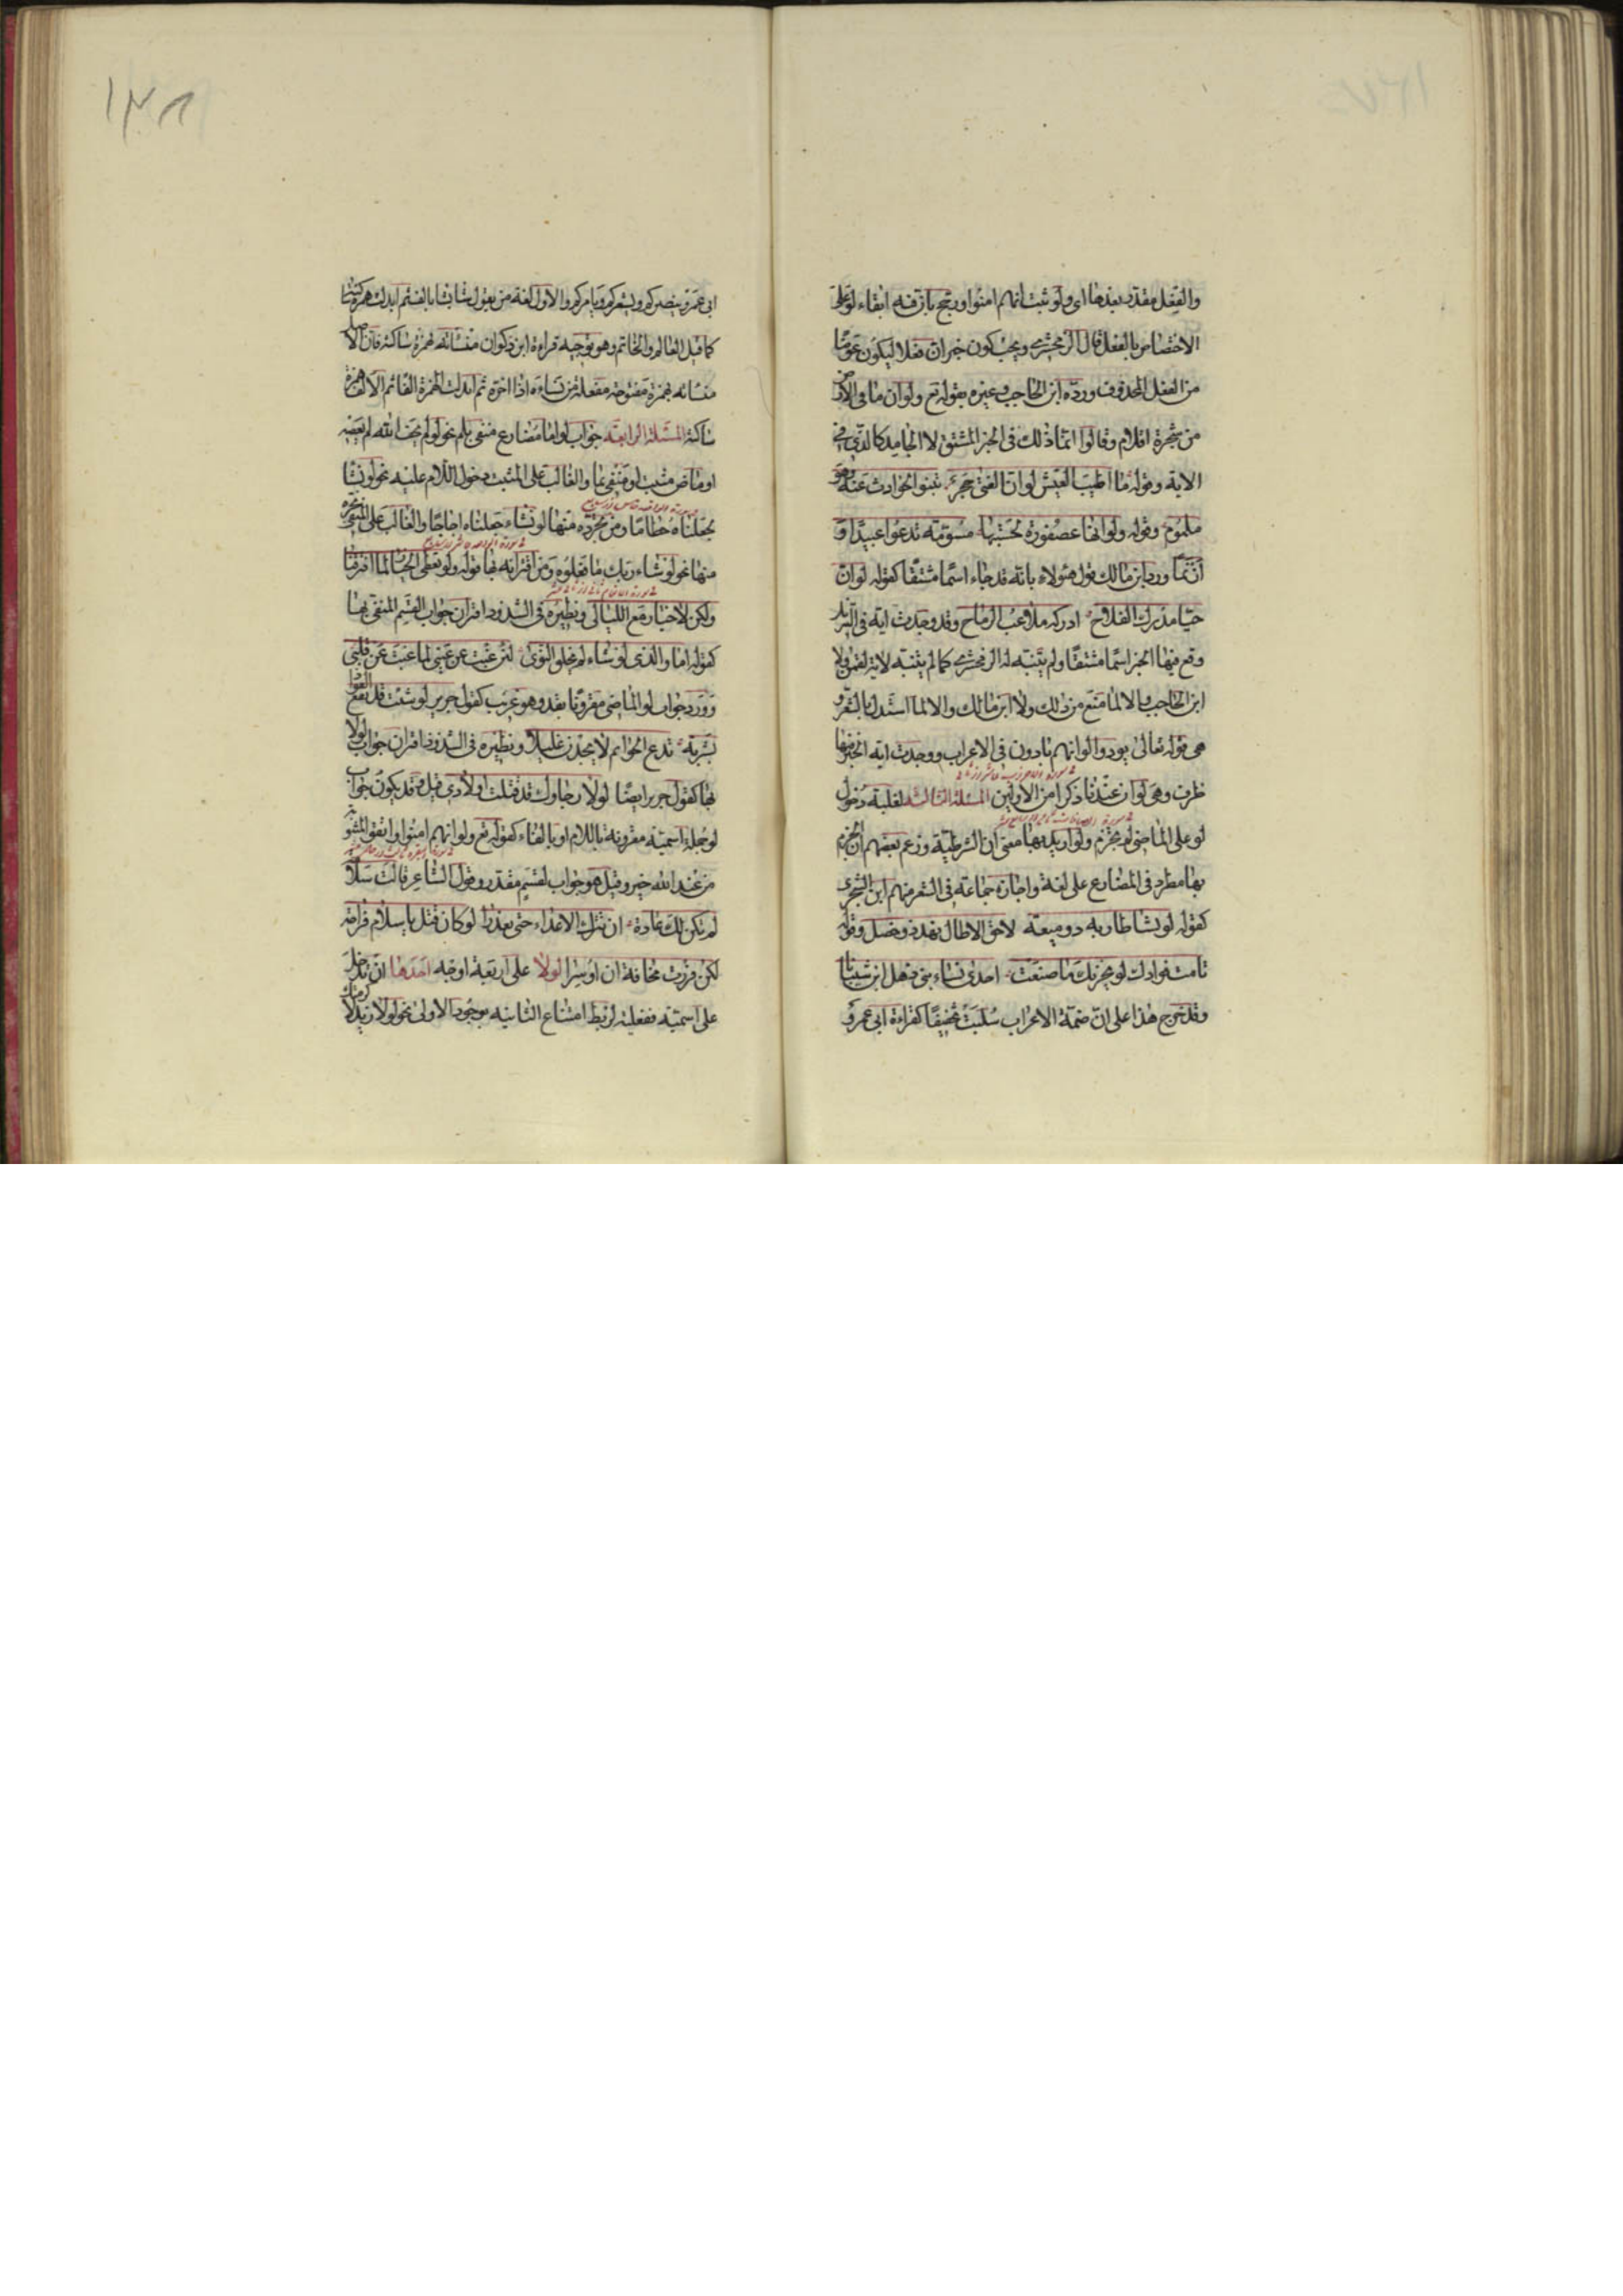 والفعل مقدر بعدها اى ولو ثبت انهم امنوا ورجح بان فيه ابقاء لو على
الاختصاص بالفعل قال الزمخشرى ويجب كون خبر ان فعلا ليكون عوضا
من الفعل المحذوف ورده ابن الحاجب وغيره بقوله تع ولو ان ما فى الارض
من شجرة اقلام وقالوا انما ذلك فى الخبر المشتق لا الجامد كالذى فى
الاية وقوله ما اطيب العيش لو ان الفتى حجر تنبو الحوادث عنه وهو
ملموم وقوله ولو انها عصفورة لحسبتها مسومة تدعوا عبيدا و
ازنما ورد ابن مالك قول هؤلاء بانه قد جاء اسما مشتقا كقوله لو ان
حيا مدرك الفلاح ادركه ملاعب الرماح وقد وجدت اية فى التنزيل
وقع فيها الخبر اسما مشتقا ولم يتنبه لها الزمخشرى كما لم يتنبه لاية لقمن ولا
ابن الحاجب والا لما منع من ذلك ولا ابن مالك والا لما استدل بالشعر و
هى قوله تعالى يودوا لو انهم بادون فى الاعراب ووجدت اية الخبر فيها
ظرف وهى لو ان عندنا ذكرا من الاولين المسئلة الثالثة لغلبة دخول
لو على الماضى لم يجزم ولو اريد بها معنى ان الشرطية وزعم بعضهم ان الجزم
بها مطرد فى المضارع على لغة واجازه جماعة فى الشعر منهم ابن الشجرى
كقوله لو يشا طار به ذو ميعة لاحق الاطال نهد ذو خصل وقوله
تامت فؤادك لو يحزنك ما صنعت احدى نساء بنى ذهل ابن شيبانا
وقد خرج هذا على ان ضمة الاعراب سكنت تخفيفا كقراءة ابى عمرو
١٣٨
ابى عمرو ينصركم ويشعركم ويامركم والاول لغة من يقول شا يشا بالف ثم ابدلت همزة ساكنة
كما قيل العالم والخاتم وهو توجيه قراءة ابن ذكوان منسأته بهمزة ساكنة فان الاصل
منسأته بهمزة مفتوحة مفعلة من نساءه اذا اخره ثم ابدلت الهمزة الفا ثم الالف همزة
ساكنة المسئلة الرابعة جواب لو اما مضارع منفى بلم نحو لو لم يخف الله لم يعصه
او ماض مثبت او منفى بما والغالب على المثبت دخول اللام عليه نحو لو نشا
لجعلناه حطاما ومن تجرده منها لو نشاء جعلناه اجاجا والغالب على المنفى تجرده
منها نحو لو شاء ربك ما فعلوه ومن اقترانه بها قوله ولو نعطى الخيار لما افترقنا
ولكن لا خيار مع الليالى ونظيره فى الشذوذ اقتران جواب القسم المنفى بها
كقوله اما والذى لو شاء لم يخلق النوى لئن غبت عن عينى لما غبت عن قلبى
وورد جواب لو الماضى مقرونا بقد وهو غريب كقول جرير لو شئت قد نقع الفؤاد
بشربة تدع الحوائم لا يجدن غليلا ونظيره فى الشذوذ اقتران جواب لولا
بها كقول جرير ايضا لولا رجاوك قد قتلت اولادى قيل وقد يكون جواب
لو جملة اسمية مقرونة باللام او بالفاء كقوله تع ولو انهم امنوا واتقوا لمثوبة
من عند الله خير وقيل هو جواب لقسم مقدر وقول الشاعر قالت سلامة
لم يكن لك عادة ان تترك الاعداء حتى تعذرا لو كان قتل يا سلام فراحة
لكن فررت مخافة ان اوسرا لولا على اربعة اوجه احدها ان تدخل
على اسمية ففعلية لربط امتناع الثانية بوجود الاولى نحو لولا زيد لاكرمتك